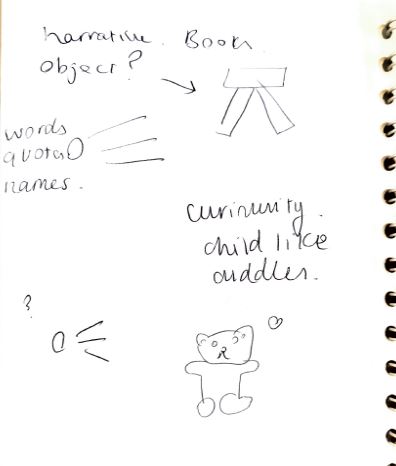 narrative. Book.
object?
words
quotes
names.
curinunity.
child like
cuddles.
?